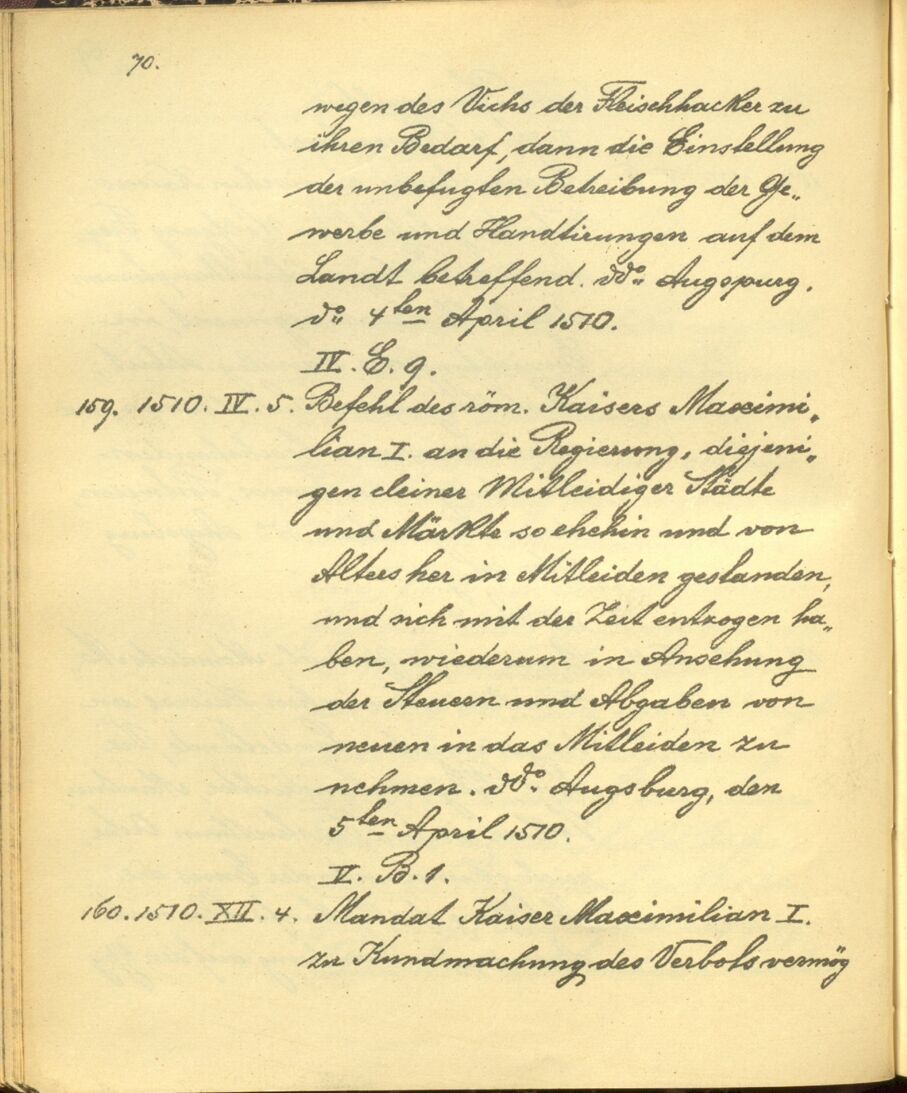 70.
wegen des Viehs der Fleischhacker zu
ihren Bedarf, dann die Einstellung
der unbefugten Betreibung der Ge„
werbe und Handtirungen auf dem
Landt betreffend. ddo: Augspurg.
do: 4ten April 1510.
IV. E. 9.
159. 1510. IV. 5. Befehl des röm. Kaisers Maximi„
lian I. an die Regierung, diejeni„
gen cleiner Mitleidiger Städte
und Märkte so ehehin und von
Alters her in Mitleiden gestanden,
und sich mit der Zeit entzogen ha„
ben, wiederum in Ansehung
der Steuern und Abgaben von
neuen in das Mitleiden zu
nehmen. ddo: Augsburg, den
5ten April 1510.
V. B. 1.
160. 1510. XII. 4. Mandat Kaiser Maximilian I.
zu Kundmachung des Verbots vermög